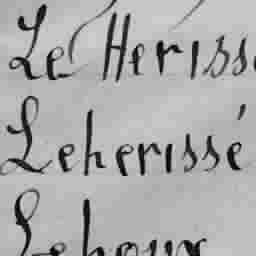 Le Heriss
Leherissé
Lehoux